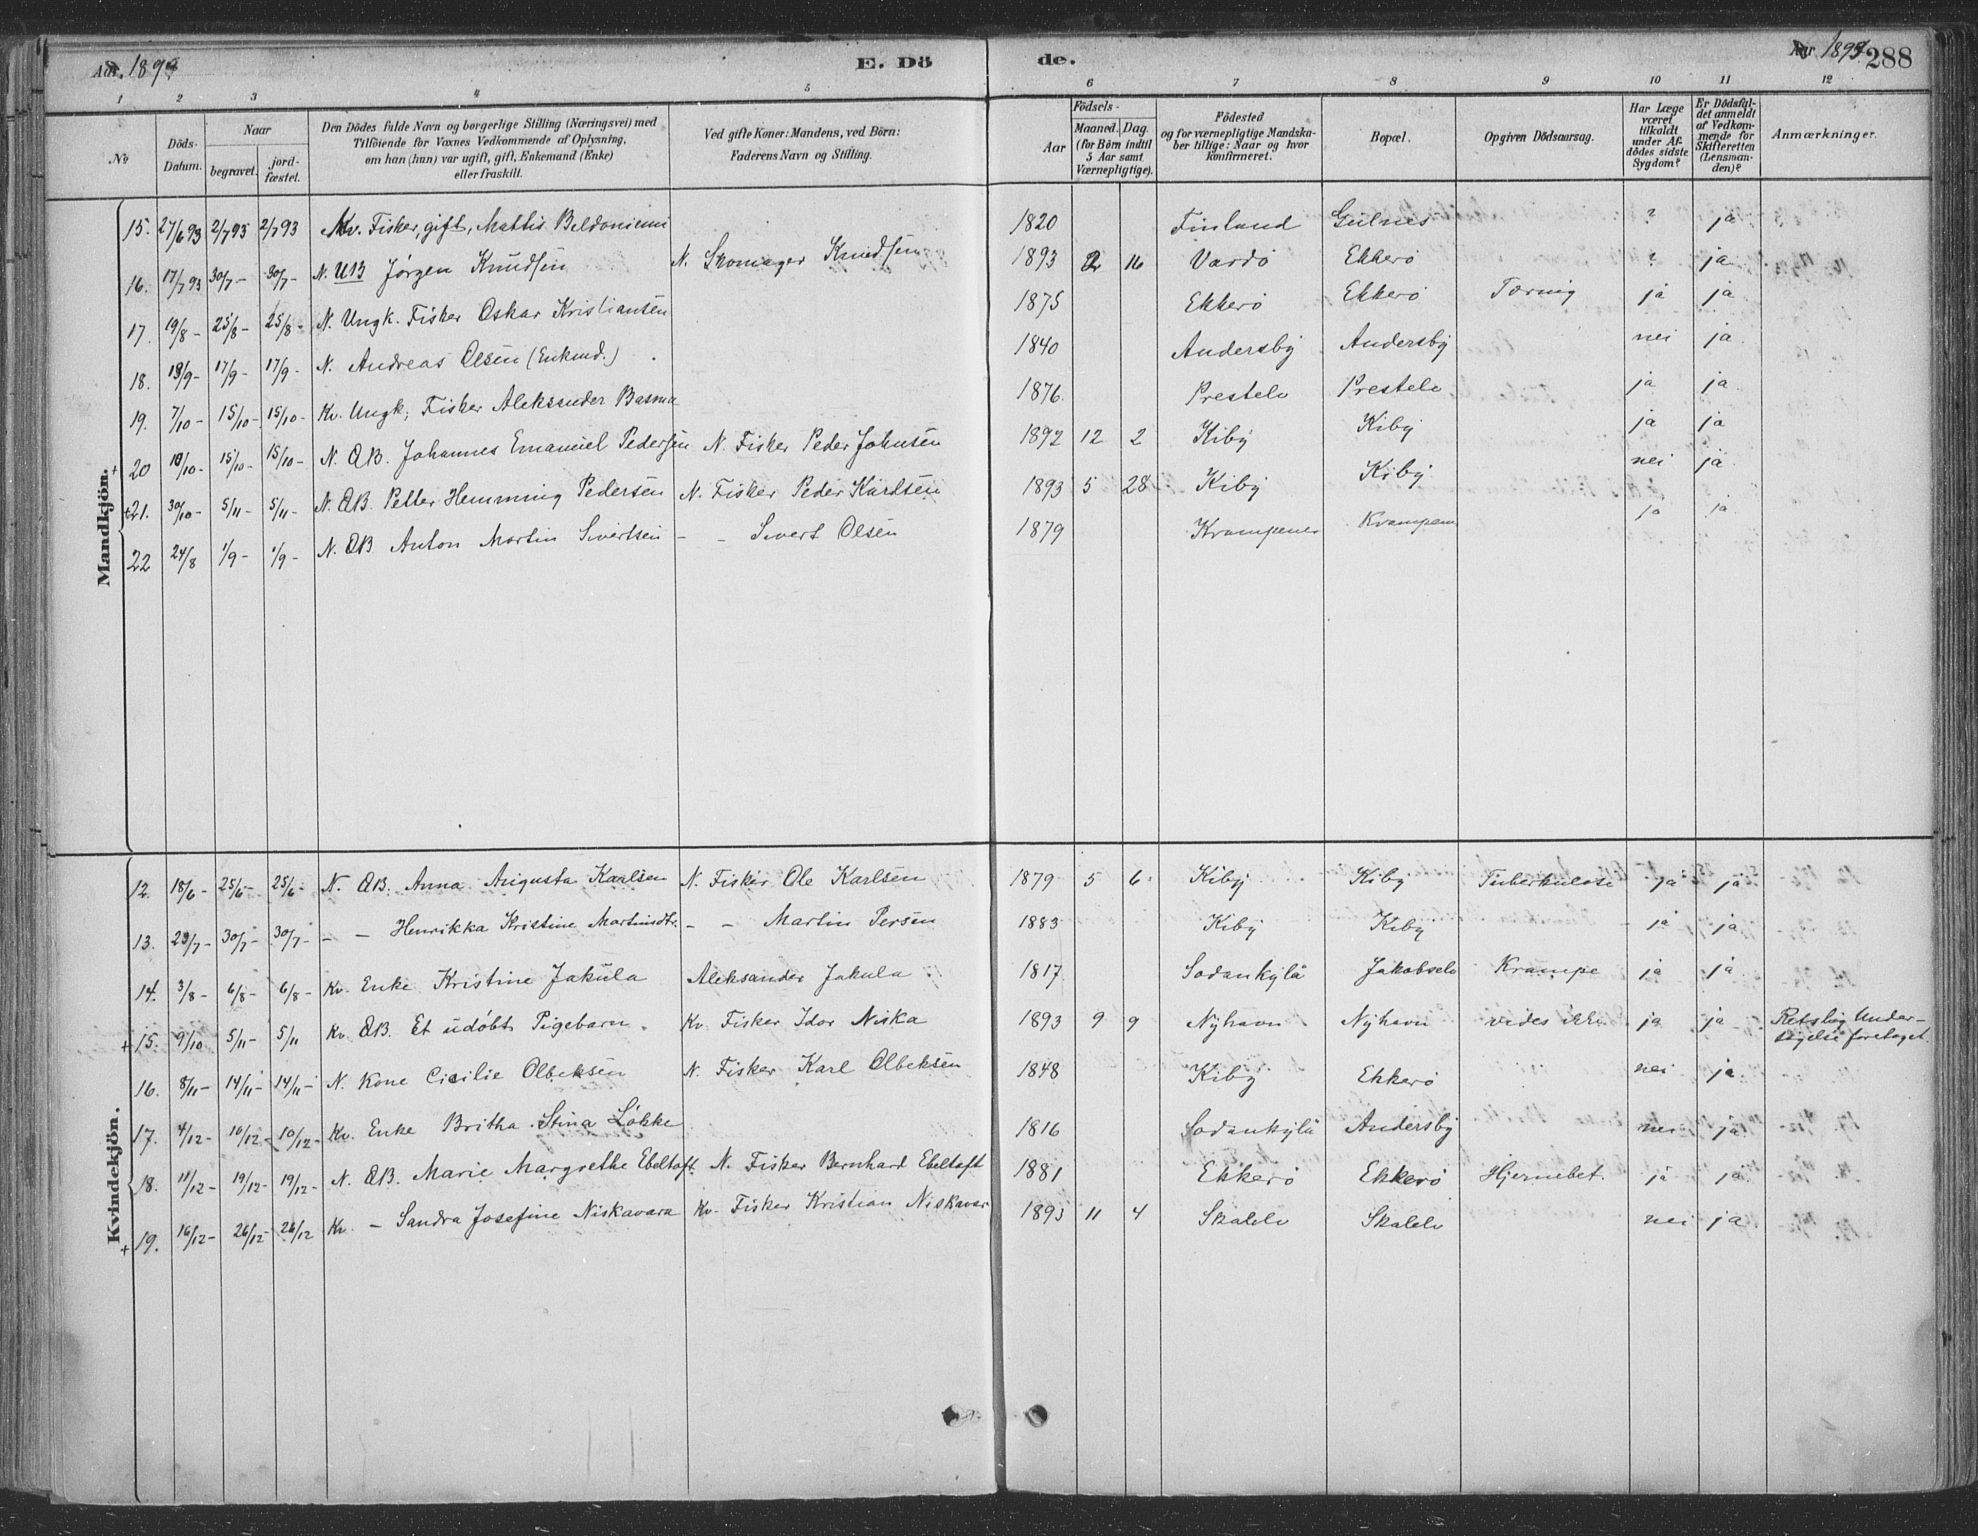 Aar. 1893 E. Dö de. Aar 1893 288
1 2 3 4 5 6 7 8 9 10 11 12
No
Döds-Datum.
Naar
begravet. jordfæstet.
Den Dödes fulde Navn og borgerlige Stilling (Næringsvei) med
Tilföiende for Voxnes Vedkommende af Oplysning,
om han (hun) var ugift, gift, Enkemand (Enke)
eller fraskilt.
Ved gifte Koner: Mandens, ved Börn:
Faderens Navn og Stilling.
Födsels-
Aar Maaned. Dag.
(for Börn indtil
5 Aar samt
Værnepligtige).
Födested
og for værnepligtige Mandska-
ber tillige: Naar og hvor
konfirmeret.
Bopæl.
Opgiven Dödsaarsag.
Har Læge
været
tilkaldt
under Af-
dödes sidste
Sygdom?
Er Dödsfal-
det anmeldt
af Vedkom-
mende for
Skifteretten
(Lensman-
den)?
Anmærkninger.
Mandkjön.
15. 27/6 93 2/7 93 2/7 93 Kv. Fisker, gift, Mattis Beldoniemi 1820 Finland Gulnes ? ja
16. 17/7 93 30/7 - 30/7 - N. UB Jørgen Knudsen N. Skomager Knudsen 1893 2 16 Vardö Ekkerö ? ja
17. 19/8 - 25/8 - 25/8 - N. Ungk. Fisker Oskar Kristiansen 1875 Ekkerö Ekkerö Tæring ja ja
18. 13/9 - 17/9 - 17/9 - N. Andreas Olsen (Enkmd.) 1840 Andersby Andersby nei ja
19. 7/10 - 15/10 - 15/10 - Kv. Ungk, Fisker Aleksander Basma 1876 Prestelv Prestelv ja ja
+ 20 10/10 - 15/10 - 15/10 - N. ÆB. Johannes Emanuel Pedersen N. Fisker Peder Johnsen 1892 12 2 Kiby Kiby ja ja
+ 21. 30/10 - 5/11 - 5/11 - N. ÆB. Petter Hemming Pedersen N. Fisker Peder Kardtsen 1893 5 28 Kiby Kiby nei ja
22 24/8 1/9 - 1/9 - N. ÆB Anton Martin Sivertsen - - Sivert Olsen 1879 Krampenes Krampenes ja ja
Kvindekjön.
12. 18/6 - 25/6 - 25/6 - N. ÆB. Anna Augusta Karlsen N. Fisker Ole Karlsen 1879 5 6 Kiby Kiby Tuberkulose ja ja
13. 23/7 - 30/7 - 30/7 - - - Henrikka Kristine Martinsdtr. - - Martin Persen 1883 Kiby Kiby ja ja
14. 3/8 - 6/8 - 6/8 - Kv. Enke Kristine Jakula Aleksander Jakula 1817 Sodankylä Jakobselv Krampe ja ja
+ 15. 9/10 5/11 - 5/11 Kv. ÆB. Et udöbt Pigebarn. Kv. Fisker Idor Niska 1893 9 9 Nyhavn Nyhavn vides ikke ja ja Retslig Under-
sögelse foretaget.
16. 8/11 - 14/11 - 14/11 - N. Kone Cicilie Olbeksen N. Fisker Karl Olbeksen 1848 Kiby Ekkerö nei ja
17. 4/12 - 10/12 - 10/12 - Kv. Enke Britha Stina Løkke 1816 Sodankylä Andersby nei ja
18. 11/12 - 19/12 - 19/12 - N. ÆB. Marie Margrethe Ebeltoft. N. Fisker Bernhard Ebeltoft 1881 Ekkerö Ekkerö Hjernebet. ja ja
+ 19. 16/12 - 26/12 - 26/12 Kv. - Sandra Josefine Niskavara Kv. Fisker Kristian Niskavar 1893 11 4 Skalelv Skalelv nei ja